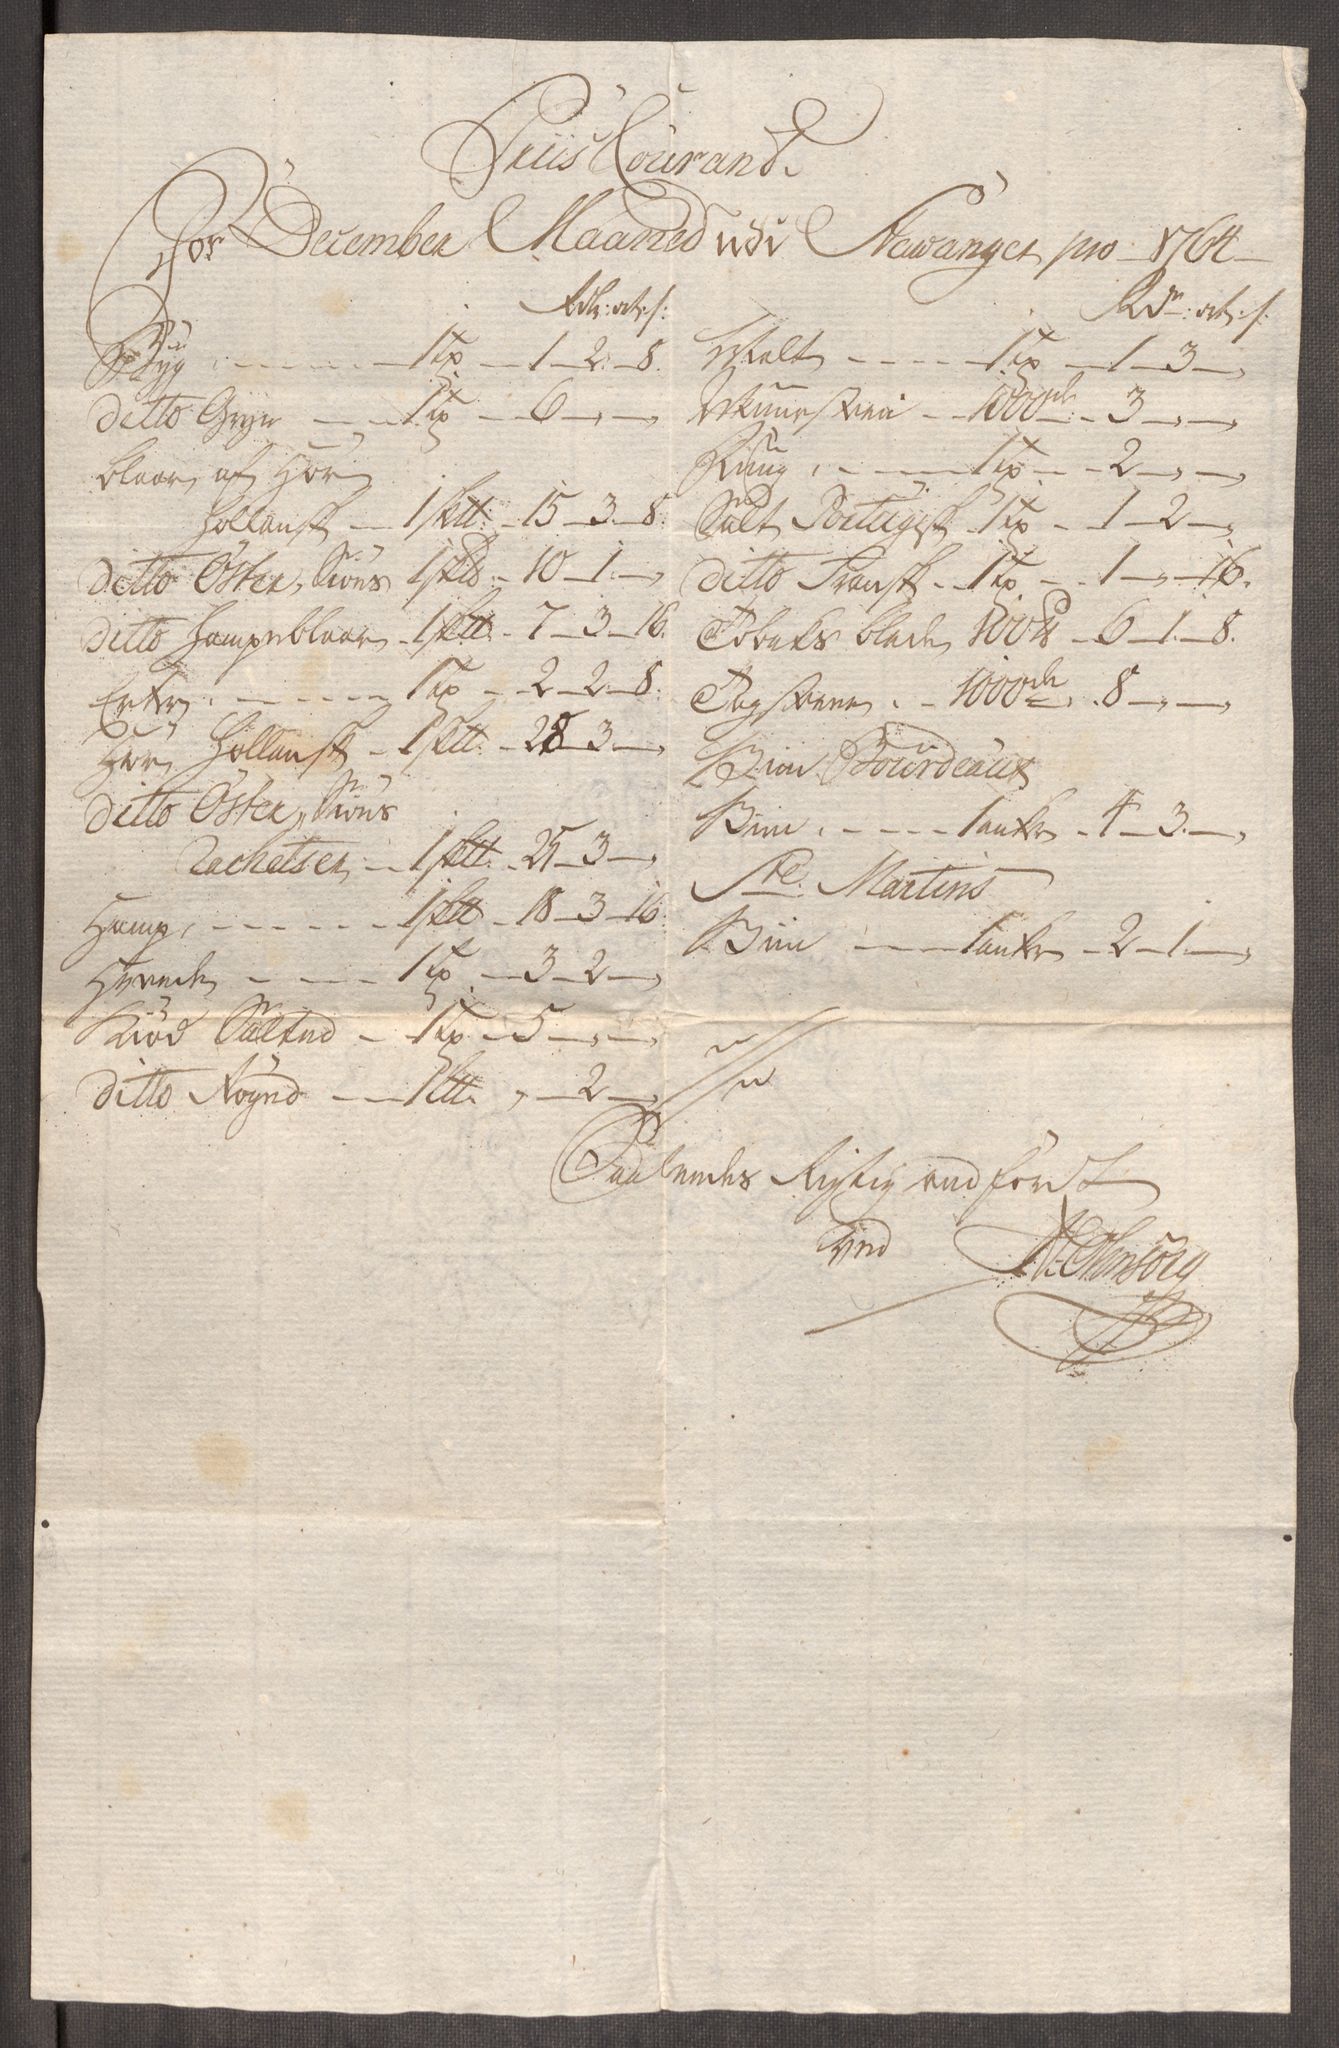 Priis Courand.
For December Maaned udi Stawanger pro 1764
Rdlr: ort: s:
Byg 1 tp 1 2 8
ditto Gryn 1 tp 6 " "
blaar af Hør
Hollansk 1 skltt: 15 3 8
ditto Øster, Siøes 1 skltt 10 1 "
ditto Hampeblaar 1 skltt 7 3 16
Erter 1 tp 2 2 8
Hør, Hollansk 1 skltt 28 3 "
ditto Øster, Siøes
Rachetser 1 skltt 25 3 "
Hamp 1 skltt 18 3 16
Hvede 1 tp 3 2 "
Kiød Salted 1 tp 5 " "
ditto Røged 1 ltt " 2 "
Rdr: ort: s:
Malt 1 tp 1 3 "
Muursteen 1000de 3 " "
Rug 1 tp 2 " "
Salt Portugisk 1 tp 1 2 "
ditto Fransk 1 tp 1 " 16
Tobaks blade 100 tt 6 1 8
Tagsteen 1000de 8 " "
Viin Bourdeaux
Viin 1 anker 4 3 "
St. Martins
Viin 1 anker 2 1 "
Saaledes Rigtig andført
ved